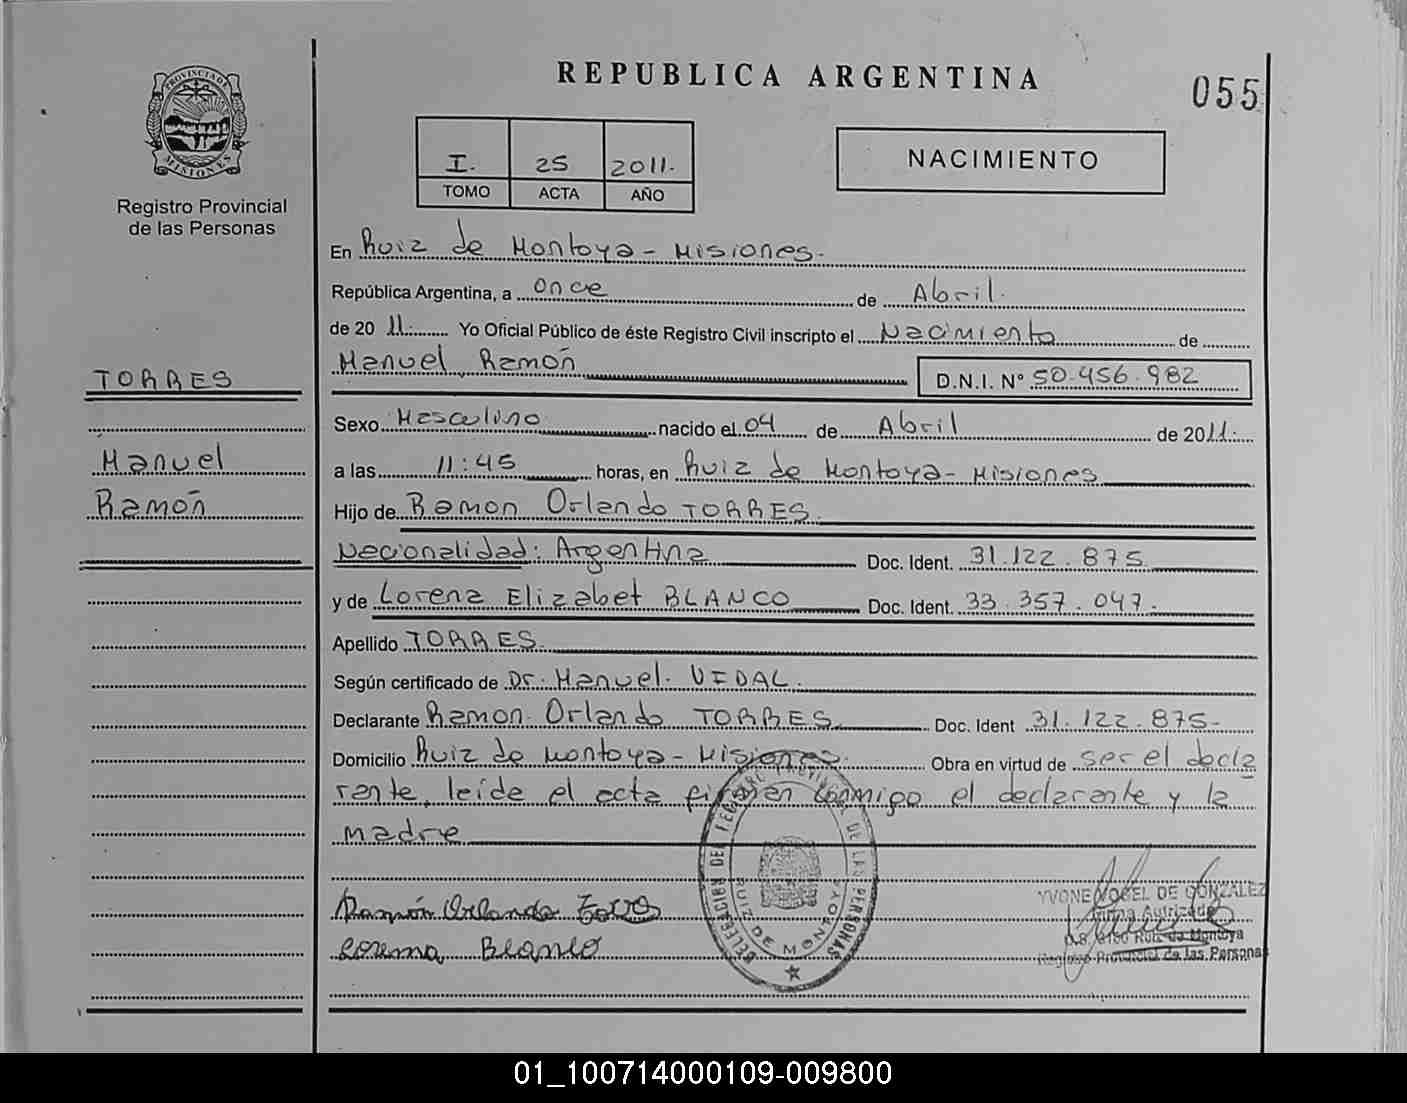 REPUBLICA ARGENTINA
055
PROVINCIA DE
MISIONES
Registro Provincial
de las Personas
I. 25 2011.
TOMO ACTA AÑO
NACIMIENTO
En Ruiz de Montoya - Misiones.
República Argentina, a once de Abril.
de 20 11. Yo Oficial Público de éste Registro Civil inscripto el Nacimiento de
Manuel Ramón D.N.I. N° 50.456.982
TORRES
Manuel
Ramón
Sexo Masculino nacido el 04 de Abril de 2011.
a las 11:45 horas, en Ruiz de Montoya - Misiones
Hijo de Ramon Orlando TORRES.
Nacionalidad: Argentina Doc. Ident. 31.122.875
y de Lorena Elizabet BLANCO Doc. Ident. 33.357.047.
Apellido TORRES.
Según certificado de Dr. Manuel. VIDAL.
Declarante Ramon Orlando TORRES. Doc. Ident 31.122.875-
Domicilio Ruiz de Montoya - Misiones. Obra en virtud de ser el decla
rante, leída el acta firman conmigo el declarante y la
madre
Ramón Orlando Torres
Lorena Blanco
DELEGACION DEL REGISTRO PROVINCIAL DE LAS PERSONAS
RUIZ DE MONTOYA
YVONE VOGEL DE GONZALEZ
Firma Autorizada
Ruiz de Montoya
Registro Provincial de las Personas
01_100714000109-009800